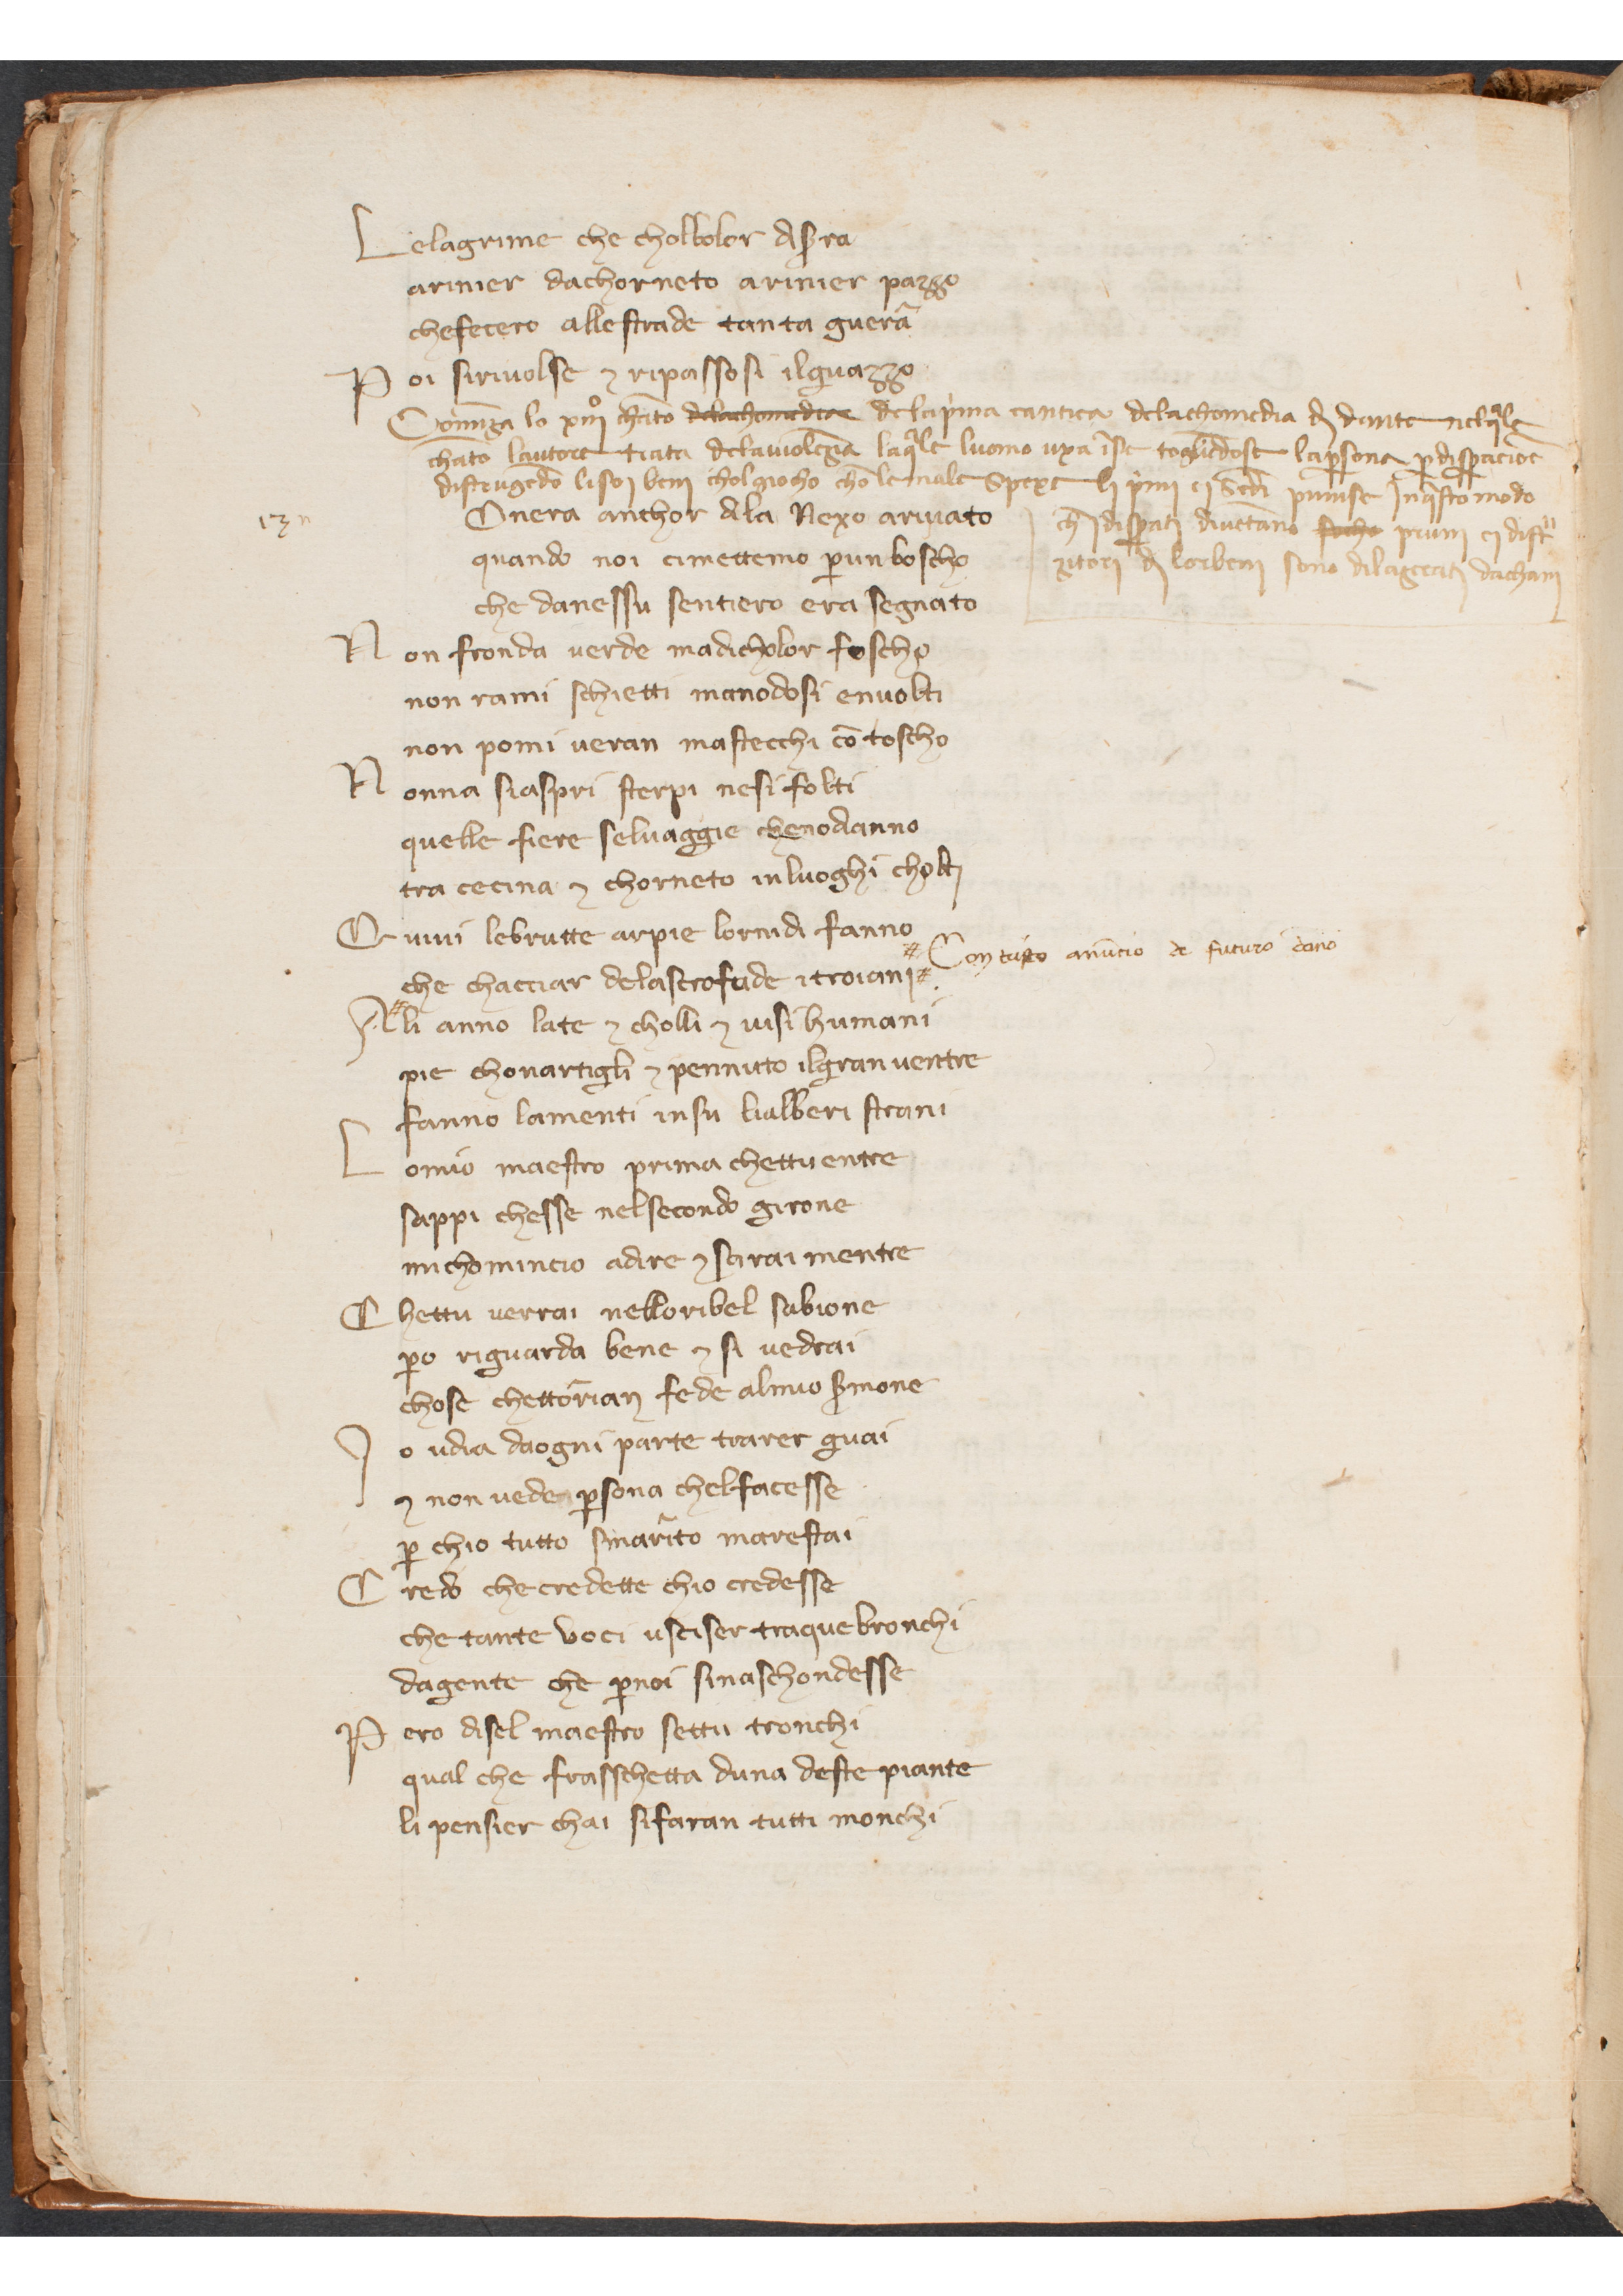 Lelagrime che cholbolor diſra
arinier dachorneto arinier pazzo
chefecero alleſtrade tanta guerã
Poi ſirivolſe ⁊ ripaſſosi ilguazzo
Comīza lo xiijº chāto delachomedia delap̍ma cantica delachomedia di dante nelqᵃle
chāto lautore trata delauiolēzia laqᵃle luomo uxa ī se togliēdose lap̱sona p̱ disp̱acioē
diſtrugēdo li ſoi beni cholgiocho chō le male spexe li p̍mi ei ſcdi puniſe Inqᵃſto modo
chi disp̱ati diuētano pruni ei diſtᵘ
zitori di lorbeni ſono dilacerati dachani
13
Onera anchor dila Nexo arivato
quando noi cimettemo p̱un boscho
che daneſſu ſentiero era ſegnato
Non fronda verde madicholor foscho
non rami ſchietti manodoſi envolti
non pomi veran maſtecchi cō toscho
Nonna ſiaſpri ſterpi neſi folti
quelle fiere ſelvaggie chenodanno
tra cecina ⁊ chorneto inluoghi cholti
Quivi lebrutte arpie lornidi fanno
che chacciar delaſtrofade itroiani #
# Con tristo anūcio de futuro dano
Ali anno late ⁊ cholli ⁊ viſi humani
pie chonartigli ⁊ pennuto ilgran ventre
fanno lamenti inſu lialberi ſtrani
Lo mio maeſtro prima chettu entre
ſappi cheſſe nelſecondo girone
mi chomincio adire ⁊ ſarai mentre
Chettu verrai nelloribel ſabione
p̱o riguarda bene ⁊ ſi vedrai
choſe chettorian fede almio ſ̱mone
Io udia daogni parte trarer guai
⁊ non vede p̱sona chelfaceſſe
p̱ chio tutto ſmarito mareſtai
Credo che credette chio credeſſe
che tante voci uſciſer traque bronchi
dagente che p̱noi ſinaſchondeſſe
Pero diſel maeſtro ſettu tronchi
qual che fraſſchetta duna deſte piante
li penſier chai ſifaran tutti monchi